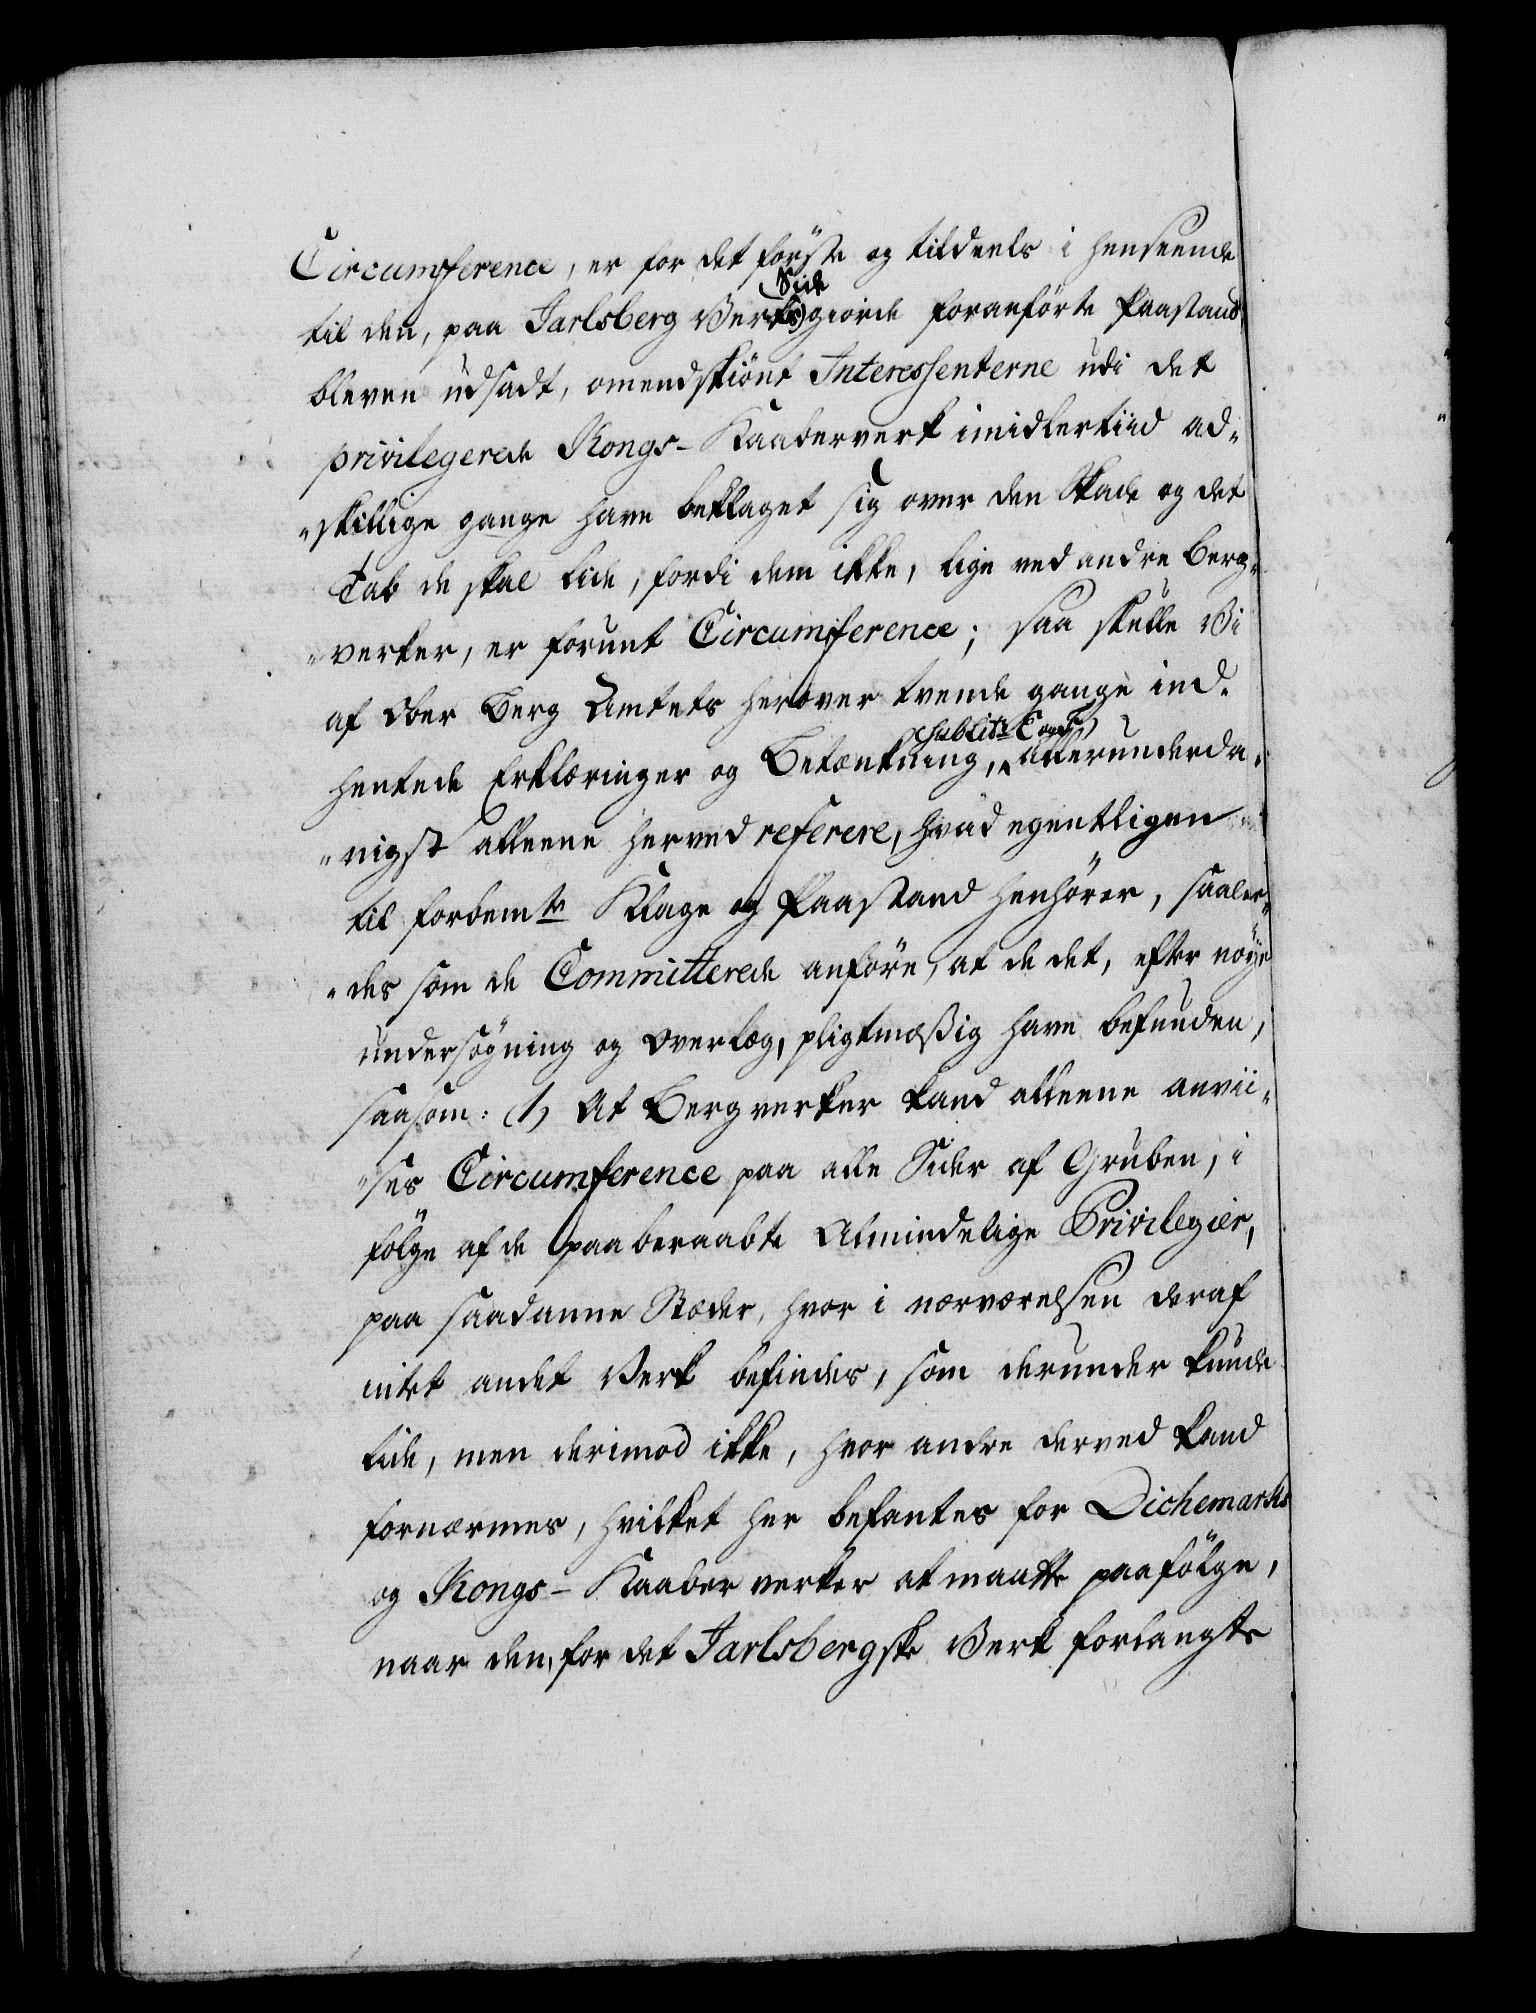 Circumference, er for det förste og tildeels i henseende
til den, paa Jarlsberg Verks Side giorde foranförte Paastand
bleven udsadt, omendskiönt Interessenterne udi det
privilegerede Kongs-Kaaberverk imidlertiid ad-
skillige gange have beklaget sig over den Skade og det
Tab de skal lide, fordi dem ikke, lige ved andre Berg-
verker, er forunt Circumference; saa skulle Vi
af Ober Berg Amtets herover tvende gange ind-
hentede Erklæringer og Betænkning, allerunderda-
nigst alleene herved referere, hvad egentligen
til forbemte Klage og Paastand henhörer, saalee-
des som de Committerede anföre, at de det, efter nöye
undersögning og Overlæg, pligtmæssig have befunden,
saasom: (1) At Bergverker kand alleene anvii-
ses Circumference paa alle Sider af Gruben, i
fölge af de paaberaabte Almindelige Privilegier,
paa saadanne Stæder, hvor i nærværelsen deraf
intet andet Verk befindes, som derunder kunde
lide, men derimod ikke, hvor andre derved kand
fornærmes, hvilket her befantes for Dichemarks
og Kongs-Kaaber verker at maatte paafölge,
naar den, for det Jarlsbergske Verk forlangte